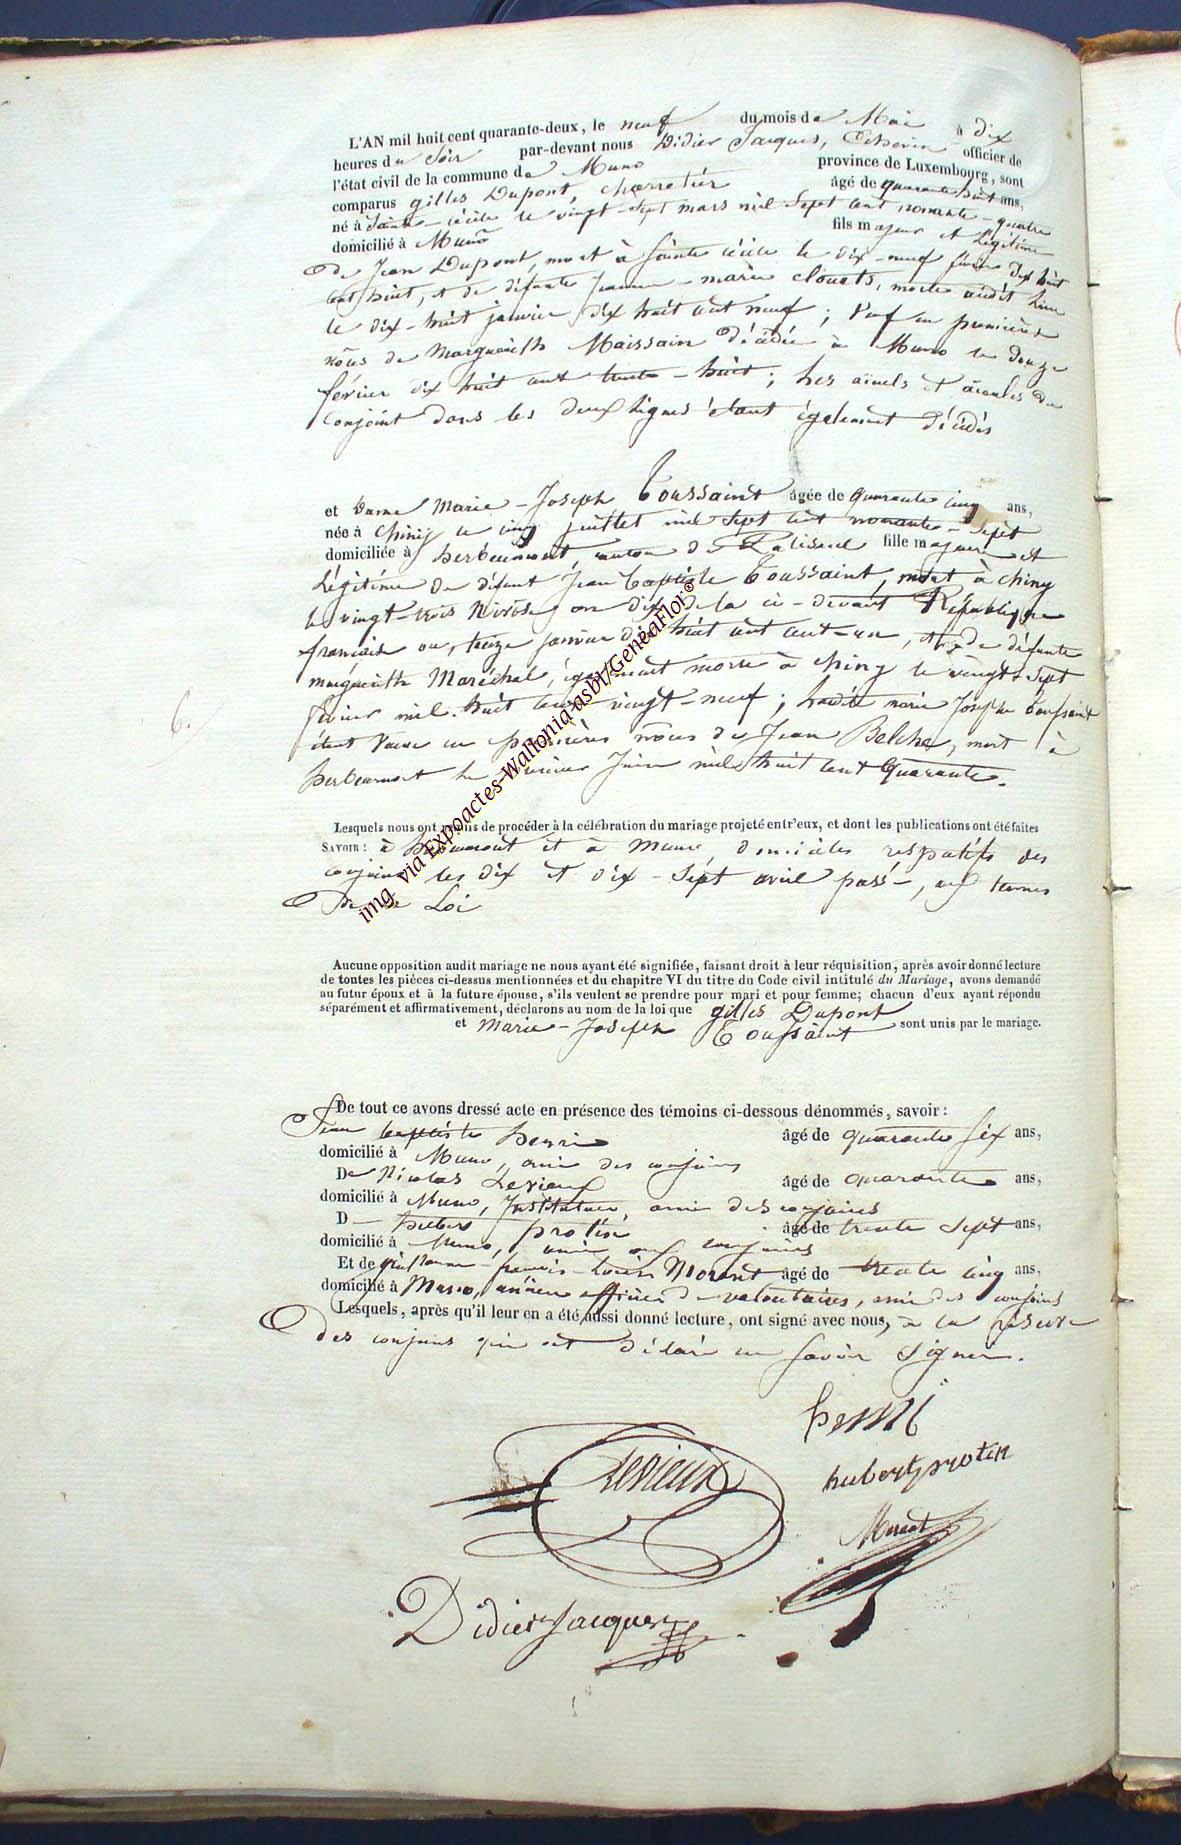 L'AN mil huit cent quarante-deux, le neuf du mois de Mai à dix
heures du Soir par-devant nous Didier Jacques, Echevin officier de
l'état civil de la commune de Muno province de Luxembourg, sont
comparus gilles Dupont, charretier âgé de quarante huit ans,
né à Sainte-cécile le vingt-sept mars mil Sept cent nonante-quatre
domicilié à Muno fils majeur et Légitime
de Jean Dupont, mort à Sainte cécile le dix-neuf février dix huit
cent huit, et de défunte Jeanne-marie clouets, morte audit Lieu
le dix-huit janvier dix huit cent neuf; Veuf en premières
nôces de Marguerith Maissain Décédée à Muno le douze
février dix huit cent trente-huit; Les aïeuls et aïeules du
conjoint dans les deux Lignes étant également Décédés
et Dame Marie-Joseph Toussaint âgée de quarante cinq ans,
née à Chiny le cinq juillet mil Sept cent nonante-Sept
domiciliée à herbeumont, canton de Paliseul fille majeure et
Légitime de défunt Jean baptiste Toussaint, mort à chiny
le vingt-trois Nivôse, an dix de la ci-devant République
française ou, treize janvier dix huit cent un, et de défunte
marguerithe Maréchal, également morte à chiny le vingt-Sept
février mil huit cent vingt-neuf; Ladite marie Josephe Toussaint
étant Veuve en premières nôces de Jean Belche, mort à
herbeumont le premier Juin mil huit cent Quarante.
6.
Lesquels nous ont requis de procéder à la célébration du mariage projeté entr'eux, et dont les publications ont été faites
SAVOIR: à herbeumont et à Muno domiciles respectifs des
conjoints les dix et dix-Sept avril passé, aux termes
De la Loi
Aucune opposition audit mariage ne nous ayant été signifiée, faisant droit à leur réquisition, après avoir donné lecture
de toutes les pièces ci-dessus mentionnées et du chapitre VI du titre du Code civil intitulé du Mariage, avons demandé
au futur époux et à la future épouse, s'ils veulent se prendre pour mari et pour femme; chacun d'eux ayant répondu
séparément et affirmativement, déclarons au nom de la loi que gilles Dupont
et Marie-Joseph Toussaint sont unis par le mariage.
De tout ce avons dressé acte en présence des témoins ci-dessous dénommés, savoir:
Jean baptiste henri âgé de quarante Six ans,
domicilié à Muno, ami des conjoints
De Nicolas Levieux âgé de quarante ans,
domicilié à Muno, Instituteur, ami des conjoints
D hubert protin âgé de trente Sept ans,
domicilié à Muno, ami aux conjoints
Et de guillaume-françois-Louis Morent âgé de trente cinq ans,
domicilié à Muno, ancien officier de volontaires, ami des conjoints
Lesquels, après qu'il leur en a été aussi donné lecture, ont signé avec nous, à la réserve
des conjoints qui ont déclaré ne Savoir Signer.
henri
Levieux
hubert protin
Morent
Didier Jacques
img via Expoactes-Wallonia-asbl/GeneaFlor©